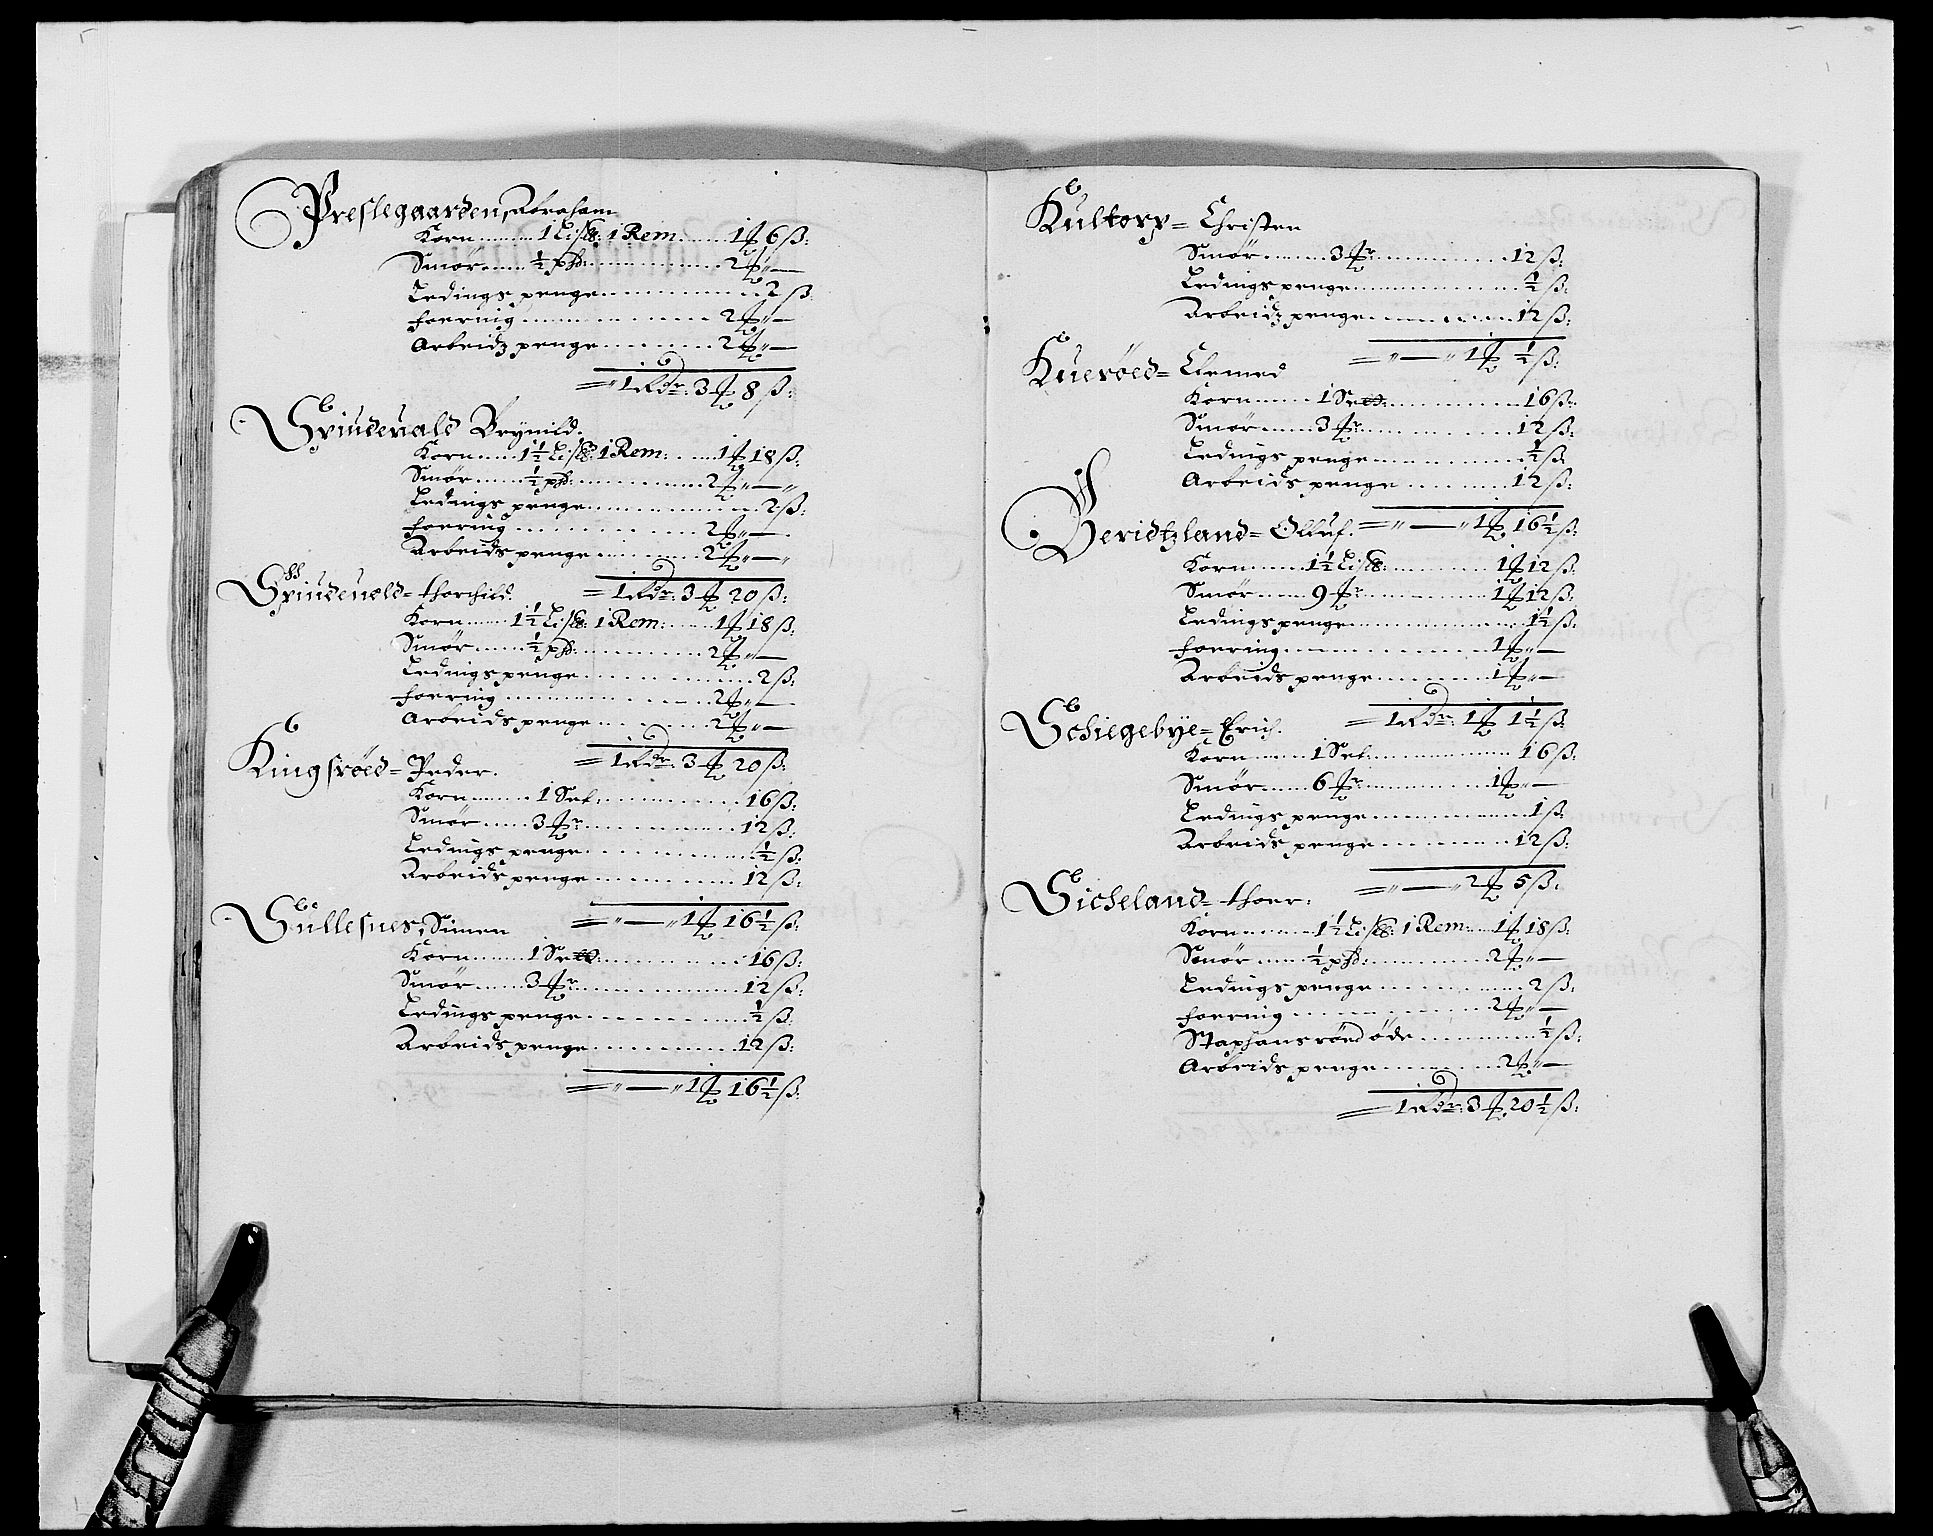 Preslegaarden, Abraham
Korn ........ 1 Lis℔: 1 Rem ...... 1 ℔ 6 ß:
Smör ...... ½ pd: .............. 2 ℔ „ —
Ledings penge .............. 2 ß:
foering .............. 2 ℔ „ —
Arbeidz penge .......... 2 ℔ „ —
= „ 1 Rdr: 3 ℔ 8 ß:
Spindeuald Brynild.
Korn ..... 1½ Lis℔: 1 Rem: ..... 1 ℔ 18 ß:
Smör ...... ½ pd: .............. 2 ℔ „ — „
Ledings penge .............. 2 ß:
foering .............. 2 ℔ „ — .
Arbeids penge .......... 2 ℔ „ — „
= 1 Rdr: 3 ℔ 20 ß:
Spindeuold = thorchild.
Korn ...... 1½ Lis℔: 1 Rem: ...... 1 ℔ 18 ß:
Smör ...... ½ pd: .............. 2 ℔ „ —
Ledings penge .............. 2 ß:
foering .............. 2 ℔ „ —
Arbeids penge .......... 2 ℔ „ —
= 1 Rdr: 3 ℔ 20 ß:
Kingsröed = Peder.
Korn ....... 1 Set: .............. 16 ß:
Smör ...... 3 ℔r .............. 12 ß:
Ledings penge .............. ½ ß:
Arbeids penge .............. 12 ß:
= „ — „ 1 ℔ 16½ ß:
Gullesnes, Simen
Korn ....... 1 Set: .............. 16 ß:
Smör ...... 3 ℔r .............. 12 ß:
Ledings penge .............. ½ ß:
Arbeids penge .............. 12 ß:
= „ — „ 1 ℔ 16½ ß:
Kultorp = Christen
Smör ....... 3 ℔r .............. 12 ß:
Ledings penge .............. ½ ß:
Arbeidz penge .............. 12 ß:
= „ — „ 1 ℔ ½ ß:
Kueröed = Clemed
Korn ....... 1 Set: .............. 16 ß:
Smör ...... 3 ℔r .............. 12 ß:
Ledings penge .............. ½ ß:
Arbeids penge .......... 12 ß:
= „ — „ 1 ℔ 16½ ß:
Beridtzland = Olluf.
Korn ....... 1½ Lis℔: .......... 1 ℔ 12 ß:
Smör ...... 9 ℔r .............. 1 ℔ 12 ß:
Ledings penge .............. 1½ ß:
foering .............. 1 ℔ „ —
Arbeids penge .......... 1 ℔ „ —
= 1 Rdr: 1 ℔ 1½ ß:
Schiegebye = Erich.
Korn ....... 1 Set: .............. 16 ß:
Smör ...... 6 ℔r .............. 1 ℔ „ —
Ledings penge .............. 1 ß:
Arbeids penge .......... 12 ß:
= „ — „ 2 ℔ 5 ß:
Sicheland = thoer:
Korn ........ 1½ Lis℔: 1 Rem: ..... 1 ℔ 18 ß:
Smör ...... ½ pd: .............. 2 ℔ „ —
Ledings penge .............. 2 ß:
foering .............. 2 ℔ „ —
Staphansröed öde .......... ½ ß:
Arbeids penge .......... 2 ℔ „ —
= 1 Rdr: 3 ℔ 20½ ß: